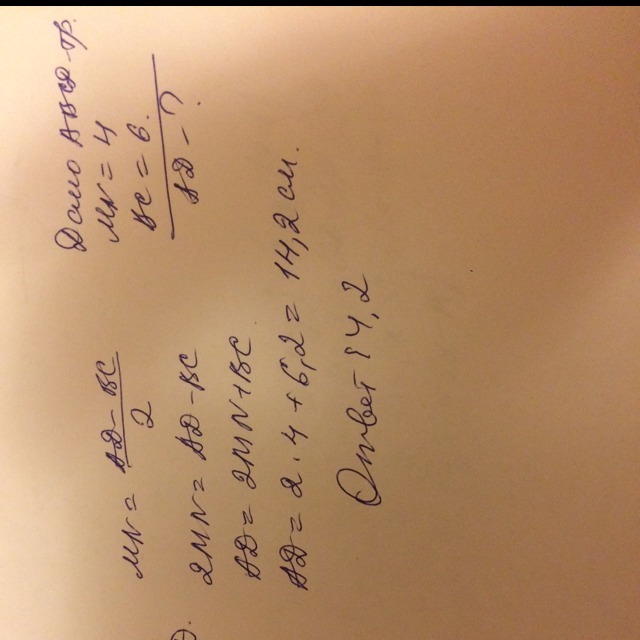 Дано ABCD-тр.
MN = 4
BC = 6.
AD - ?
MN = AD - BC / 2
2MN = AD - BC
AD = 2MN + BC
AD = 2 · 4 + 6,2 = 14,2 см.
Ответ 14,2